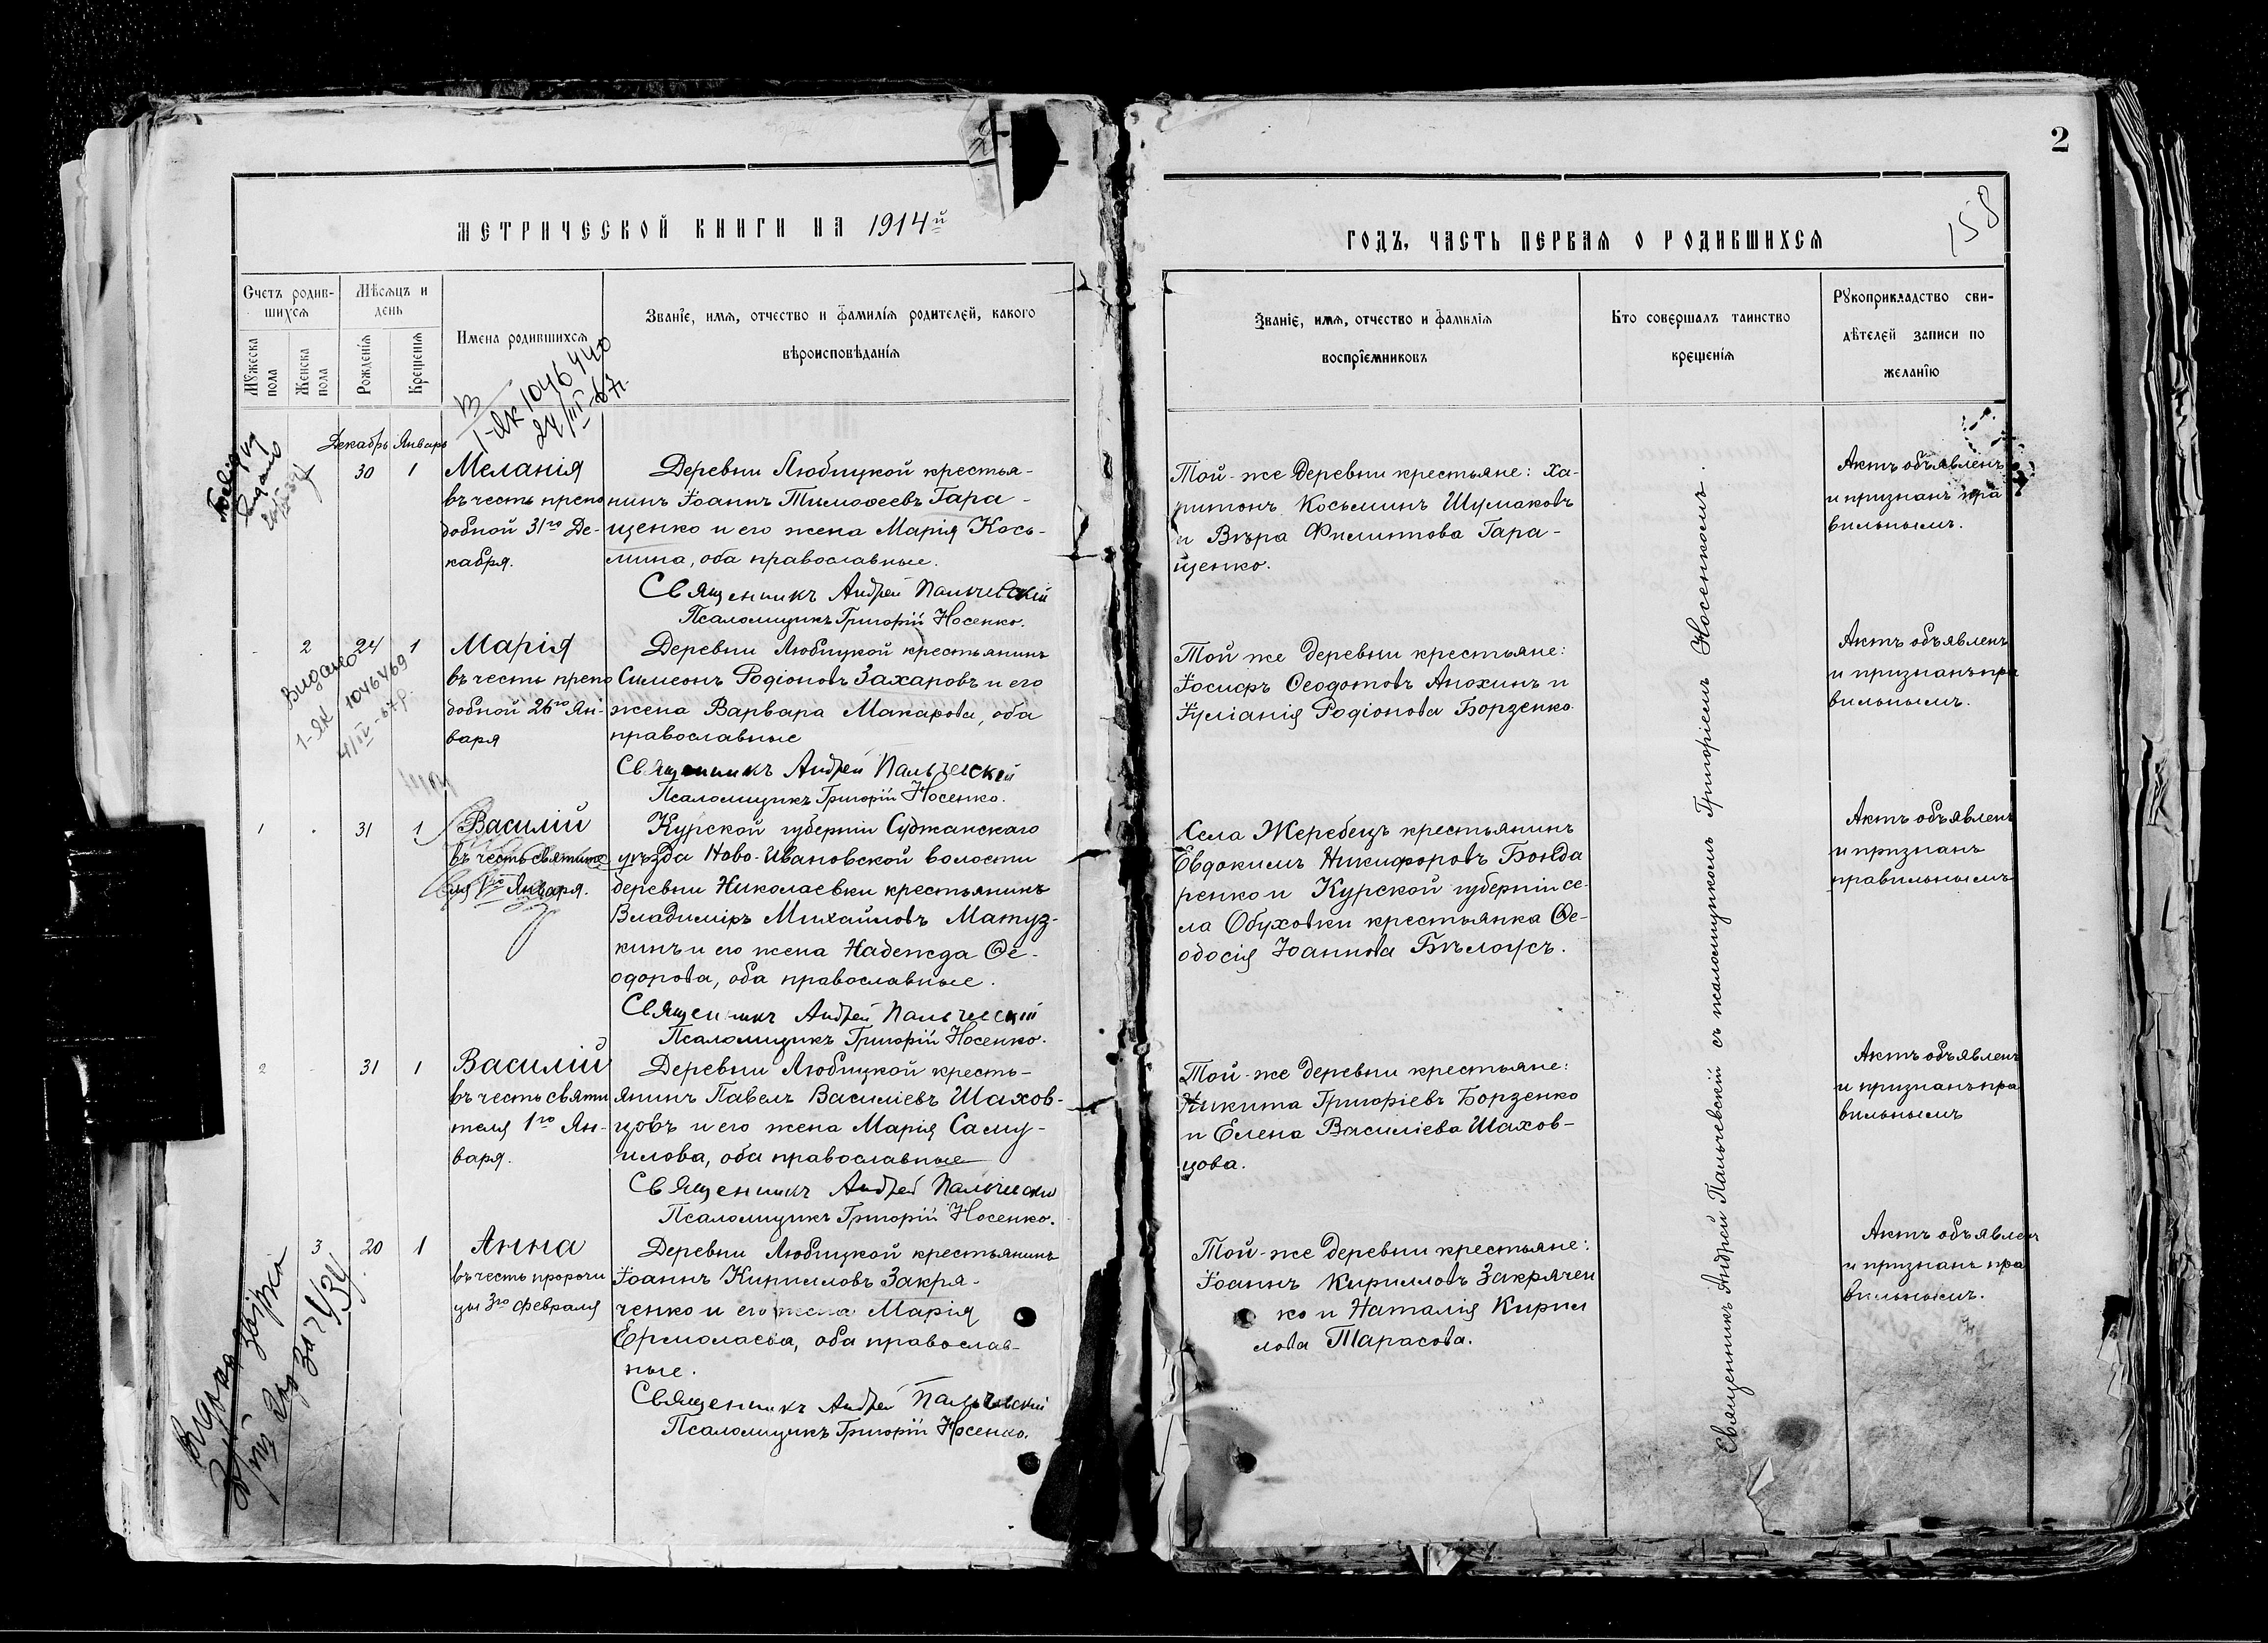 2
158
МЕТРИЧЕСКОЙ КНИГИ НА 1914й
ГОДЪ, ЧАСТЬ ПЕРВАЯ О РОДИВШИХСЯ
Счетъ родив-
шихся
Мужеска пола
Женска пола
Мѣсяцъ и
день
Рожденія
Крещенія
Имена родившихся
Званіе, имя, отчество и фамилія родителей, какого
вѣроисповѣданія
Званіе, имя, отчество и фамилія
воспріемниковъ
Кто совершалъ таинство
крещенія
Рукоприкладство сви-
дѣтелей записи по
желанію
1-ЯК 1046440
24/III-67г.
Декабрь Январь
1 30 1
Меланія
въ честь препо
добной 31го Де-
кабря.
Деревни Любицкой крестья-
нинъ Іоаннъ Тимоѳеевъ Гара-
щенко и его жена Марія Кось-
мина, оба православные.
Священникъ Андрей Пальчевскій
Псаломщикъ Григорій Носенко.
Той-же деревни крестьяне: Ха-
ритонъ Косьминъ Шумаковъ
и Вѣра Филиппова Гара-
щенко.
Актъ объявленъ
и признанъ пра
вильнымъ.
2 24 1
Видано
1-ЯК 1046469
4/IV-67р.
Марія
въ честь препо
добной 26го Ян-
варя
Деревни Любицкой крестьянинъ
Симеонъ Родіоновъ Захаровъ и его
жена Варвара Макарова, оба
православные
Священникъ Андрей Пальчевскій
Псаломщикъ Григорій Носенко.
Той же деревни крестьяне:
Іосифъ Ѳеодотовъ Анохинъ и
Іуліанія Родіонова Борзенко
Актъ объявленъ
и признанъ пра
вильнымъ.
1 31 1
Василій
въ честь святите
ля 1го Января.
Курской губерніи Суджанскаго
уѣзда Ново-Ивановской волости
деревни Николаевки крестьянинъ
Владиміръ Михайловъ Матуз-
кинъ и его жена Надежда Ѳе-
одорова, оба православные.
Священникъ Андрей Пальчевскій
Псаломщикъ Григорій Носенко.
Села Жеребецъ крестьянинъ
Евдокимъ Никифоровъ Бонда
ренко и Курской губерніи се-
ла Обуховки крестьянка Ѳе-
одосія Іоаннова Бѣлоусъ.
Актъ объявленъ
и признанъ
правильнымъ
2 31 1
Василій
въ честь святи
теля 1го Ян-
варя.
Деревни Любицкой кресть-
янинъ Павелъ Василіевъ Шахов-
цовъ и его жена Марія Саму-
илова, оба православные
Священникъ Андрей Пальчевскій
Псаломщикъ Григорій Носенко.
Той-же деревни крестьяне:
Никита Григоріевъ Борзенко
и Елена Василіева Шахов-
цова.
Актъ объявленъ
и признанъ пра
вильнымъ
3 20 1
Анна
въ честь пророчи
цы 3го Февраля
Деревни Любицкой крестьянинъ
Іоаннъ Кирилловъ Закря-
ченко и его жена Марія
Ермолаева, оба православ-
ные.
Священникъ Андрей Пальчевскій
Псаломщикъ Григорій Носенко.
Той-же деревни крестьяне:
Іоаннъ Кирилловъ Закрячен
ко и Наталія Кирил
лова Тарасова.
Актъ объявленъ
и признанъ пра
вильнымъ.
Священникъ Андрей Пальчевскій съ псаломщикомъ Григоріемъ Носенкомъ.